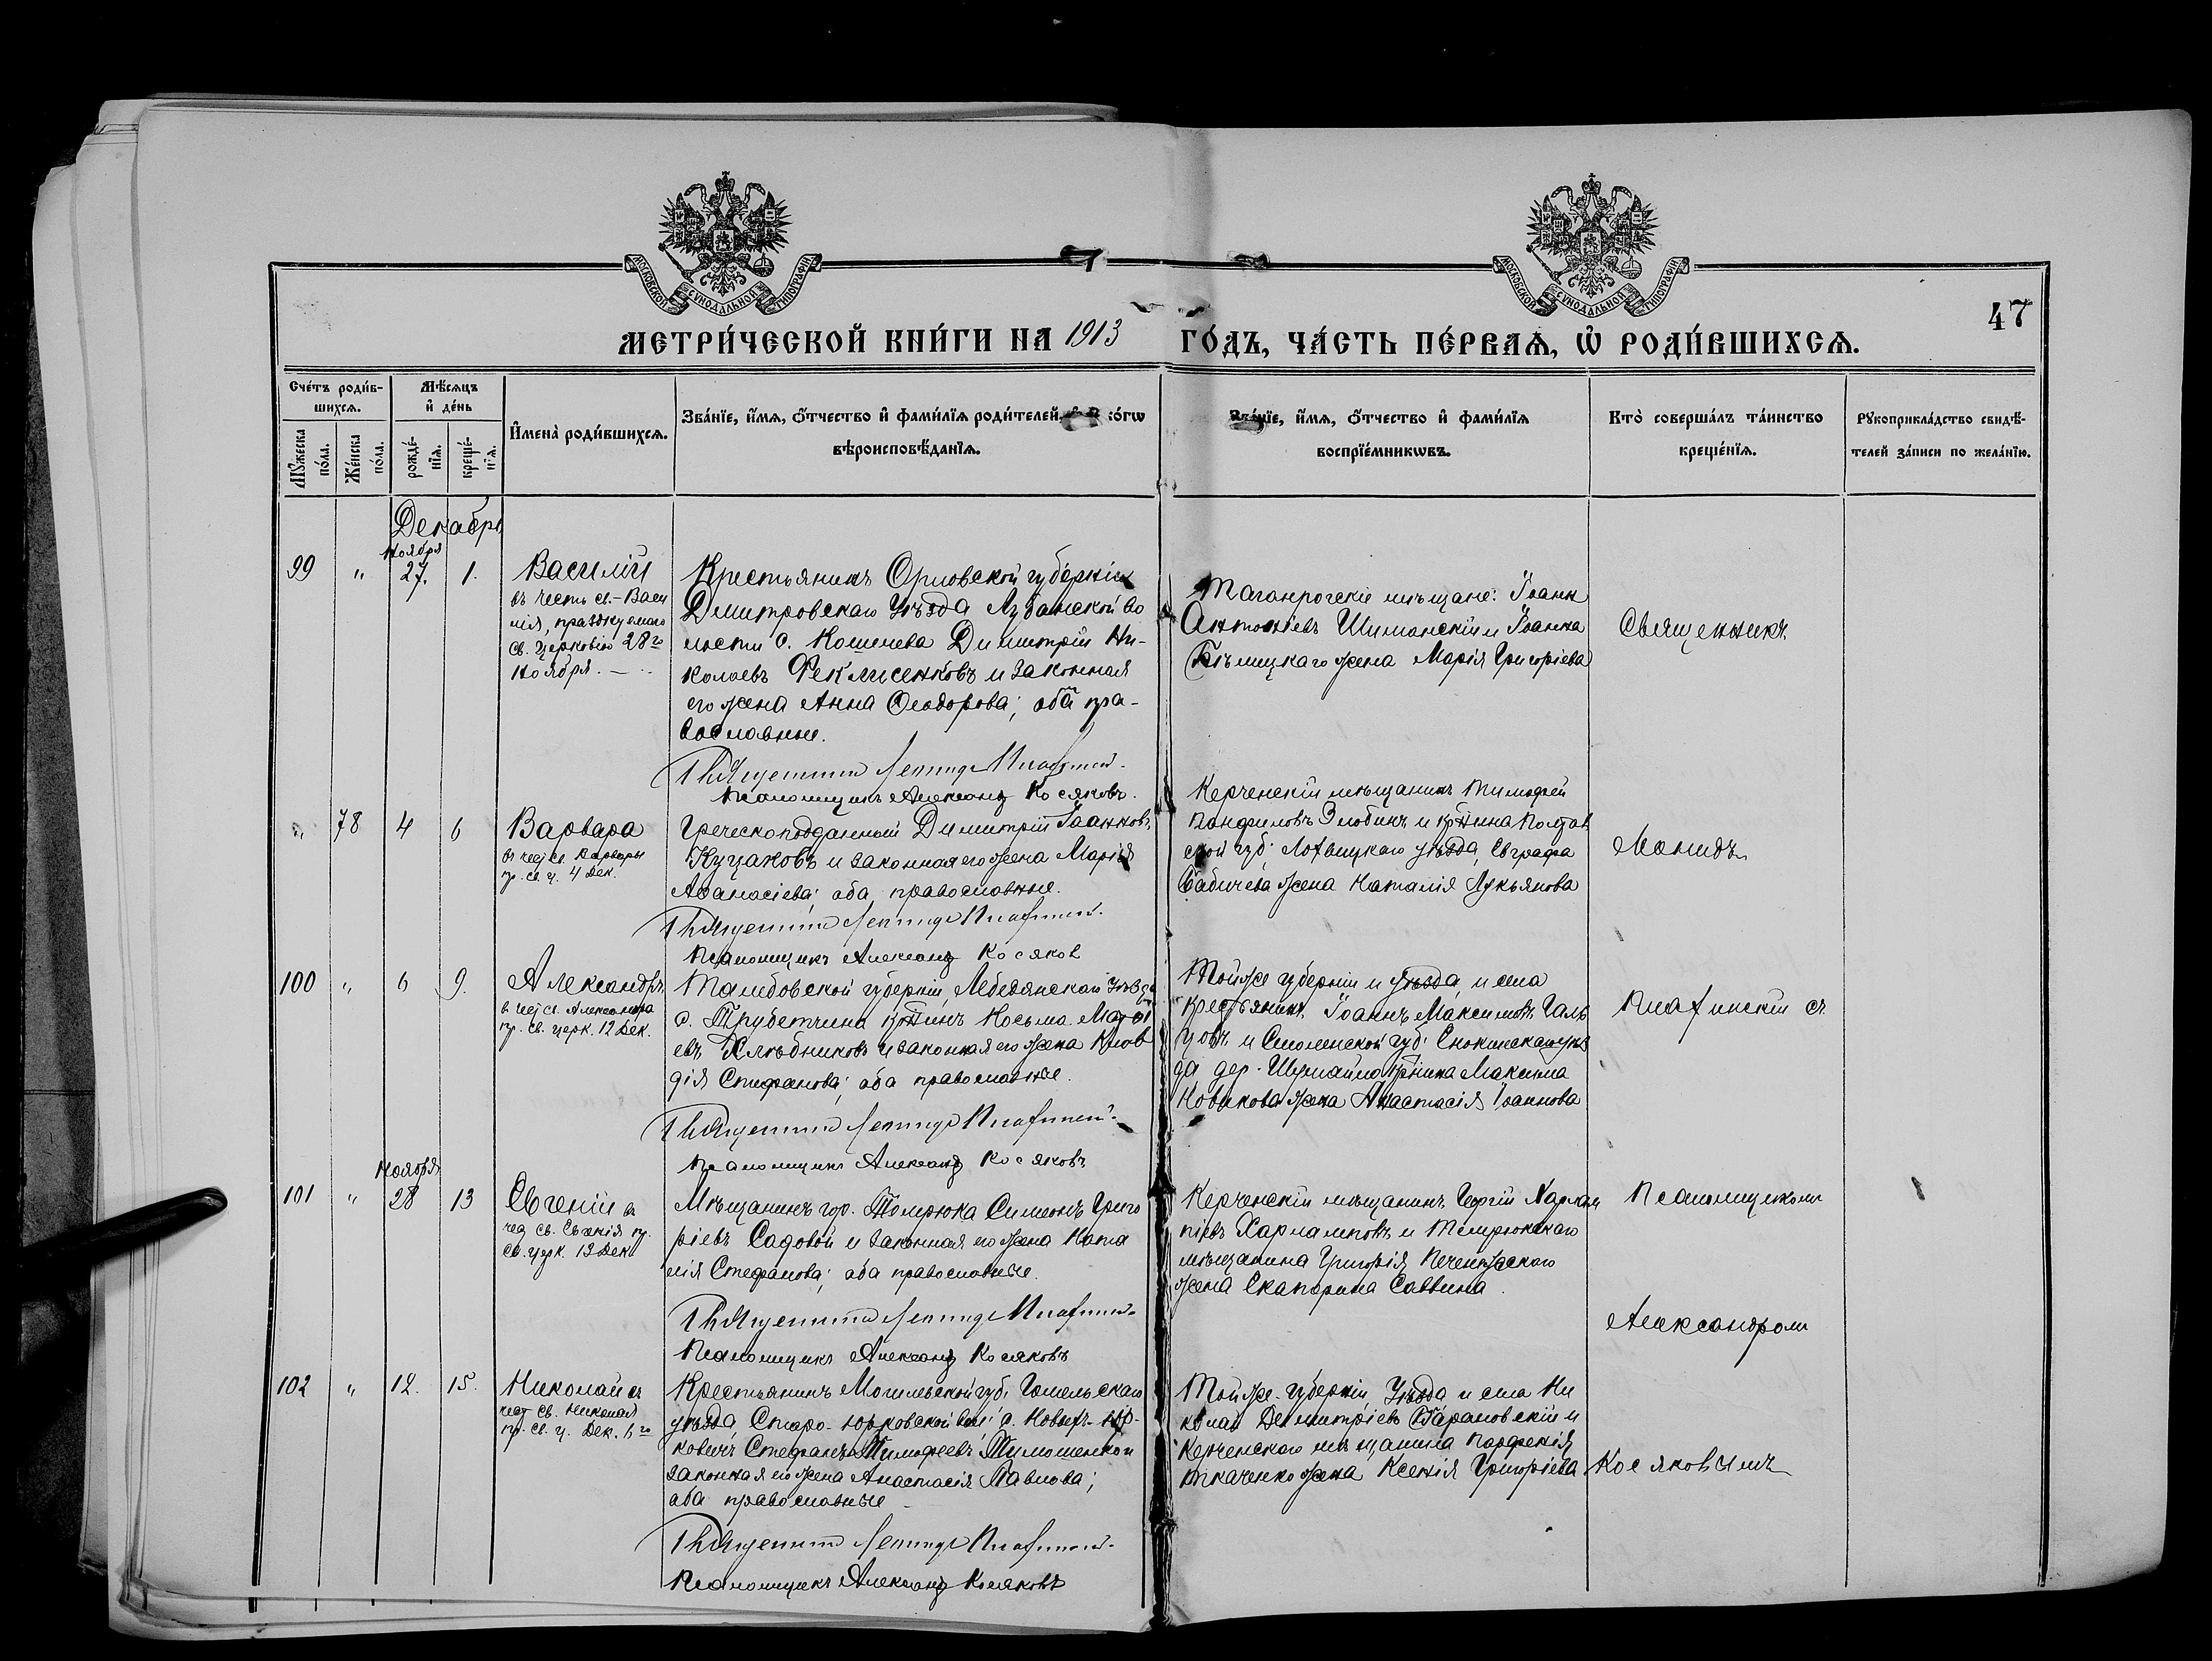 МОСКОВСКОЙ СѴНОДАЛЬНОЙ ТИПОГРАФІИ
МОСКОВСКОЙ СѴНОДАЛЬНОЙ ТИПОГРАФІИ
47
МЕТРИ́ЧЕСКОЙ КНИ́ГИ НА 1913 ГО́ДЪ, ЧА́СТЬ ПЕ́РВАѦ, Ѡ РОДИ́ВШИХСѦ.
Сче́тъ роди́в-
шихсѧ.
Мѣ́сѧцъ
и҆ де́нь
Мꙋ́жеска по́ла.
Же́нска по́ла.
рожде́-нїѧ.
креще́-нїѧ.
И҆мена̀ роди́вшихсѧ.
Зва́нїе, и҆́мѧ, ѻ҆́тчество и҆ фами́лїѧ роди́телей, и҆ ко́гѡ
вѣроисповѣ́данїѧ.
Зва́нїе, и҆́мѧ, ѻ҆́тчество и҆ фами́лїѧ
воспрїе́мникѡвъ.
Кто̀ соверша́лъ та́инство
креще́нїѧ.
Рꙋкоприкла́дство свидѣ́-
телей за́писи по жела́нїю.
Декабрь
Ноября
99 " 27. 1.
Василій
въ честь св. Васи
лія, празднуемаго
св. Церковію 28го
Ноября.
Крестьянинъ Орловской губерніи
Дмитровскаго Уѣзда Лубянской во
лости с. Кошелева Димитрій Ни-
колаевъ Феклисенковъ и законная
его жена Анна Ѳеодорова; оба пра-
вославные.
Священникъ Леонидъ Пиахинскій
Псаломщикъ Александръ Косяковъ.
Таганрогскіе мѣщане: Іоаннъ
Антоніевъ Шиманскій и Іоанна
Бѣлицкаго жена Марія Григоріева
Священникъ
" 78 4 6
Варвара
въ чест св. Варвары
пр. св. ц. 4 Дек.
Греческоподданный Димитрій Іоанновъ
Куцаковъ и законная его жена Марія
Аѳанасіева; оба православные.
Священникъ Леонидъ Пиахинскій
Псаломщикъ Александръ Косяков
Керченскій мѣщанинъ Тимофей
Панфиловъ Злобинъ и крнина Полтав
ской губ. Лохвицкаго уѣзда, Евграфа
Бабичева жена Наталія Лукьянова
Леонидъ
100 " 6 9.
Александръ
в чест св. Александра
пр. св. церк. 12 Дек.
Тамбовской губерніи, Лебедянскаго Уѣзда
с. Трубетчина крнинъ Косьма Матѳі
евъ Хлѣбниковъ и законная его жена Клав
дія Стефанова; оба православные.
Священникъ Леонидъ Пиахинскій
Псаломщикъ Александръ Косяковъ
Той же губерніи и уѣзда, и села
крестьянинъ Іоаннъ Максимовъ Галь
цовъ и Смоленской губ. уѣз
да дер. крнина Максима
Новикова жена Анастасія Іоаннова
Пиахинскій съ
Ноября
101 " 28 13
Евгеній въ
чест св. Евгенія пр.
св. церк. 13 Дек.
Мѣщанинъ гор. Темрюка Симеонъ Григо
ріевъ Садовой и законная его жена Ната
лія Стефанова; оба православные.
Священникъ Леонидъ Пиахинскій
Псаломщикъ Александръ Косяковъ
Керченскій мѣщанинъ Георгій Харлам
піевъ Харламповъ и Темрюкскаго
мѣщанина Григорія Печенѣжскаго
жена Екатерина Саввина.
Псаломщикомъ
Александромъ
102 " 12. 15.
Николай въ
чест св. Николая
пр. св. ц. Дек. 6го
Крестьянинъ Могилевской губ. Гомельскаго
уѣзда, Старо-Юрковской вол. с. Новыхъ-Юр-
ковичъ Стефанъ Тимофеевъ Тимошенко и
законная его жена Анастасія Павлова;
оба православные
Священникъ Леонидъ Пиахинскій
Псаломщикъ Александръ Косяковъ
Той же губерніи, Уѣзда и села Ни
колай Димитріевъ Барановскій и
Керченскаго мѣщанина Парфенія
Ткаченко жена Ксенія Григоріева
Косяковымъ